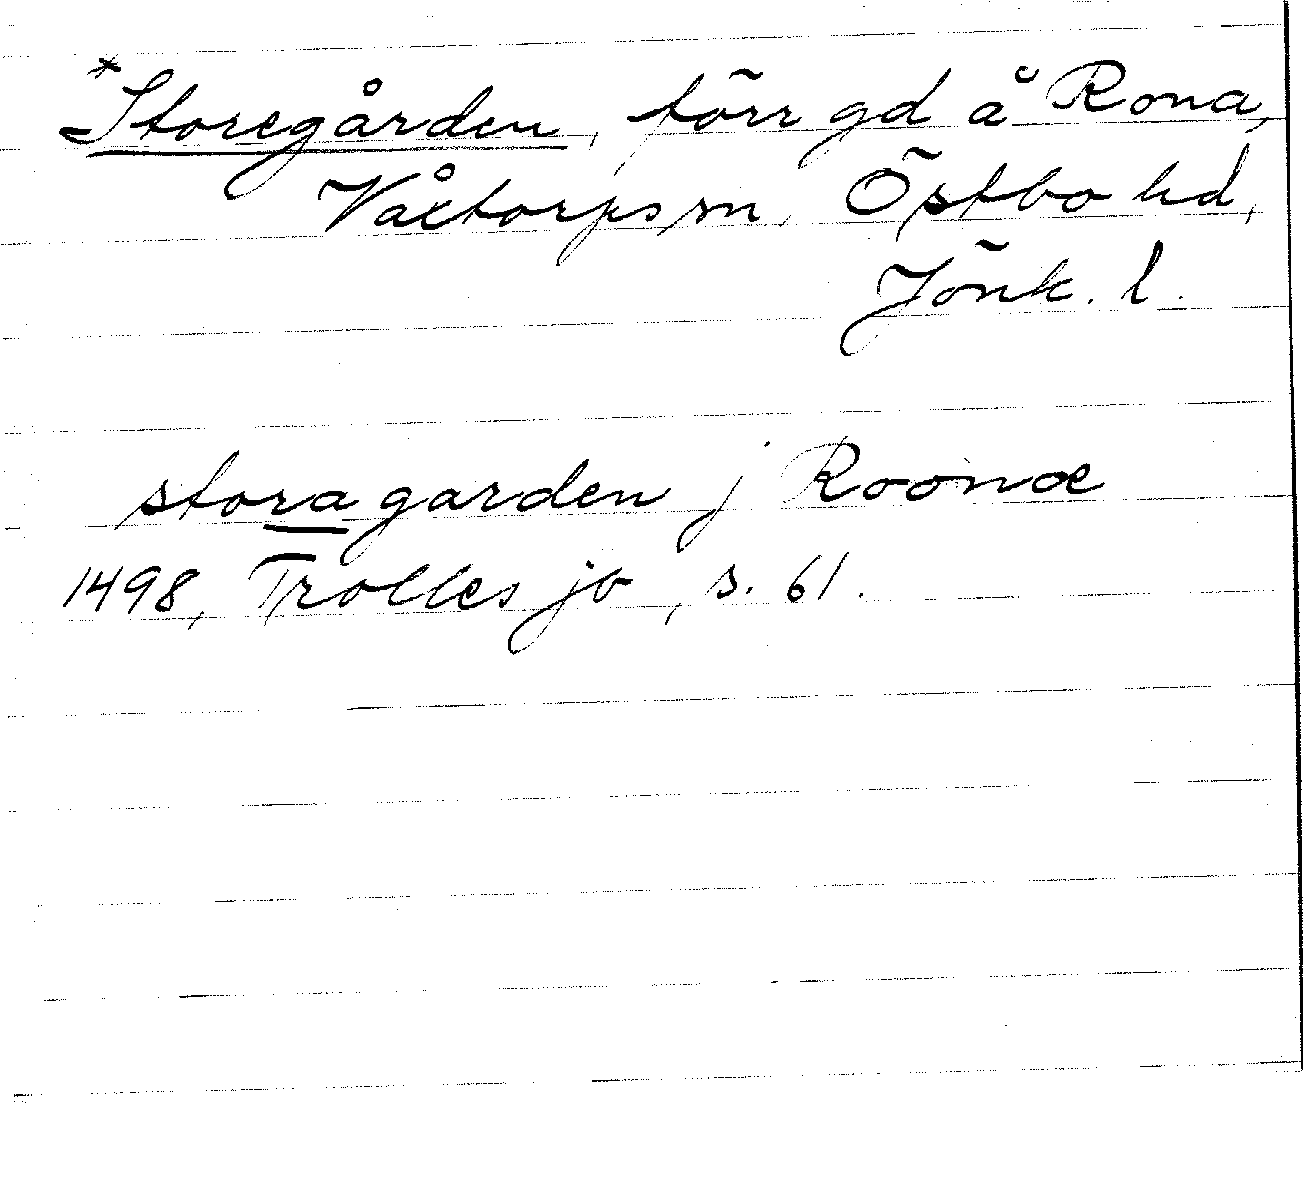 *Storegården, förr gd å Rona,
Våxtorps sn, Östbo hd,
Jönk. l.
stora garden j Roonæ
1498, Trolles jb, s. 61.